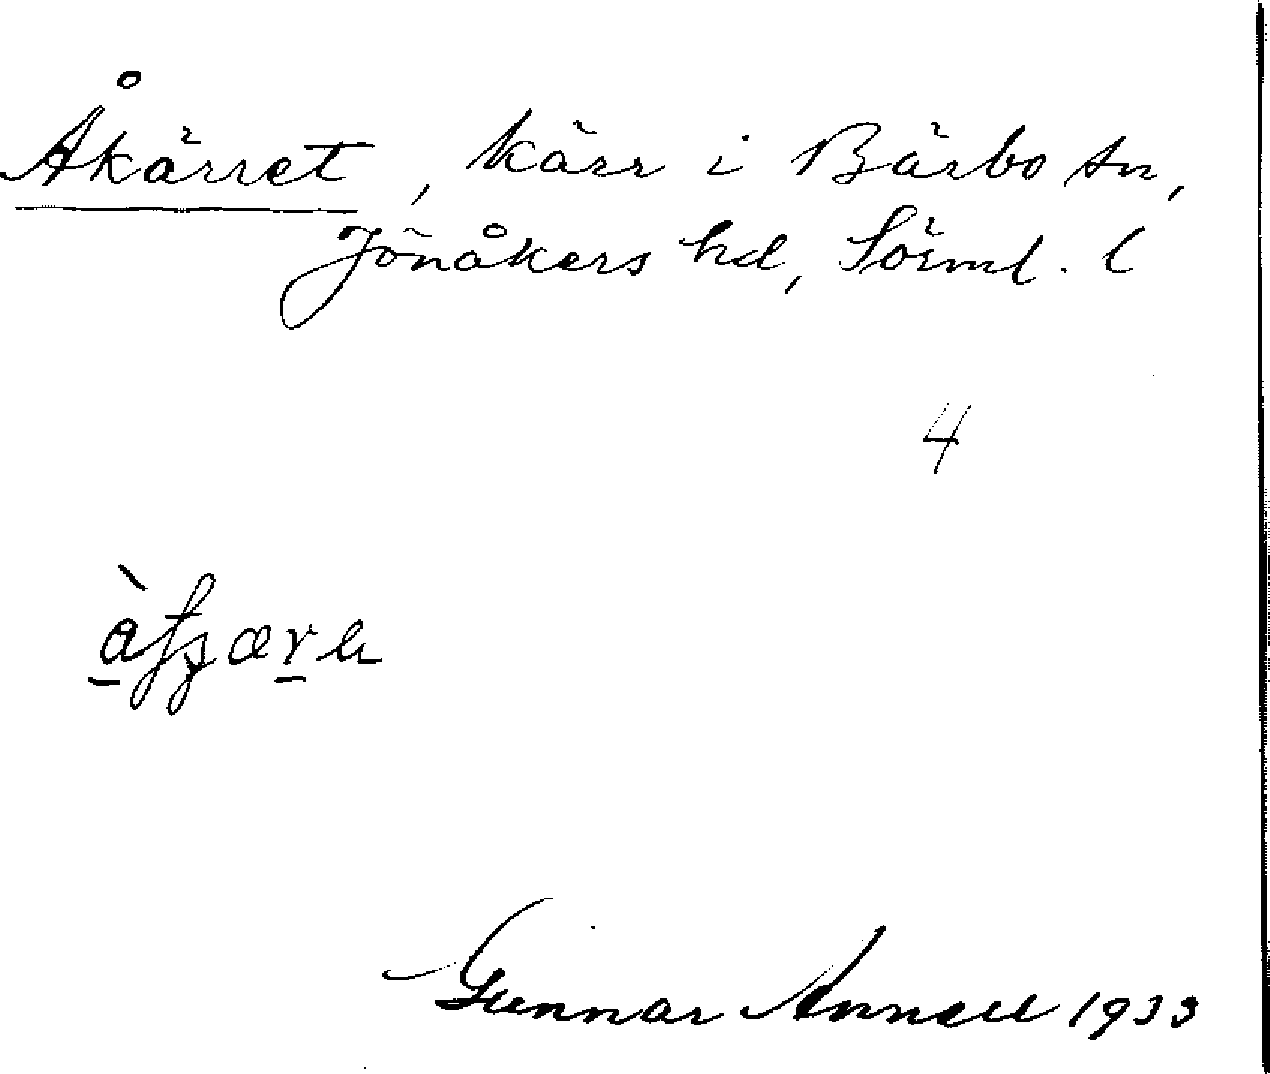 Åkärret, kärr i Bärbo sn,
Jönåkers hd, Sörml. l
4
Gunnar Annell 1933